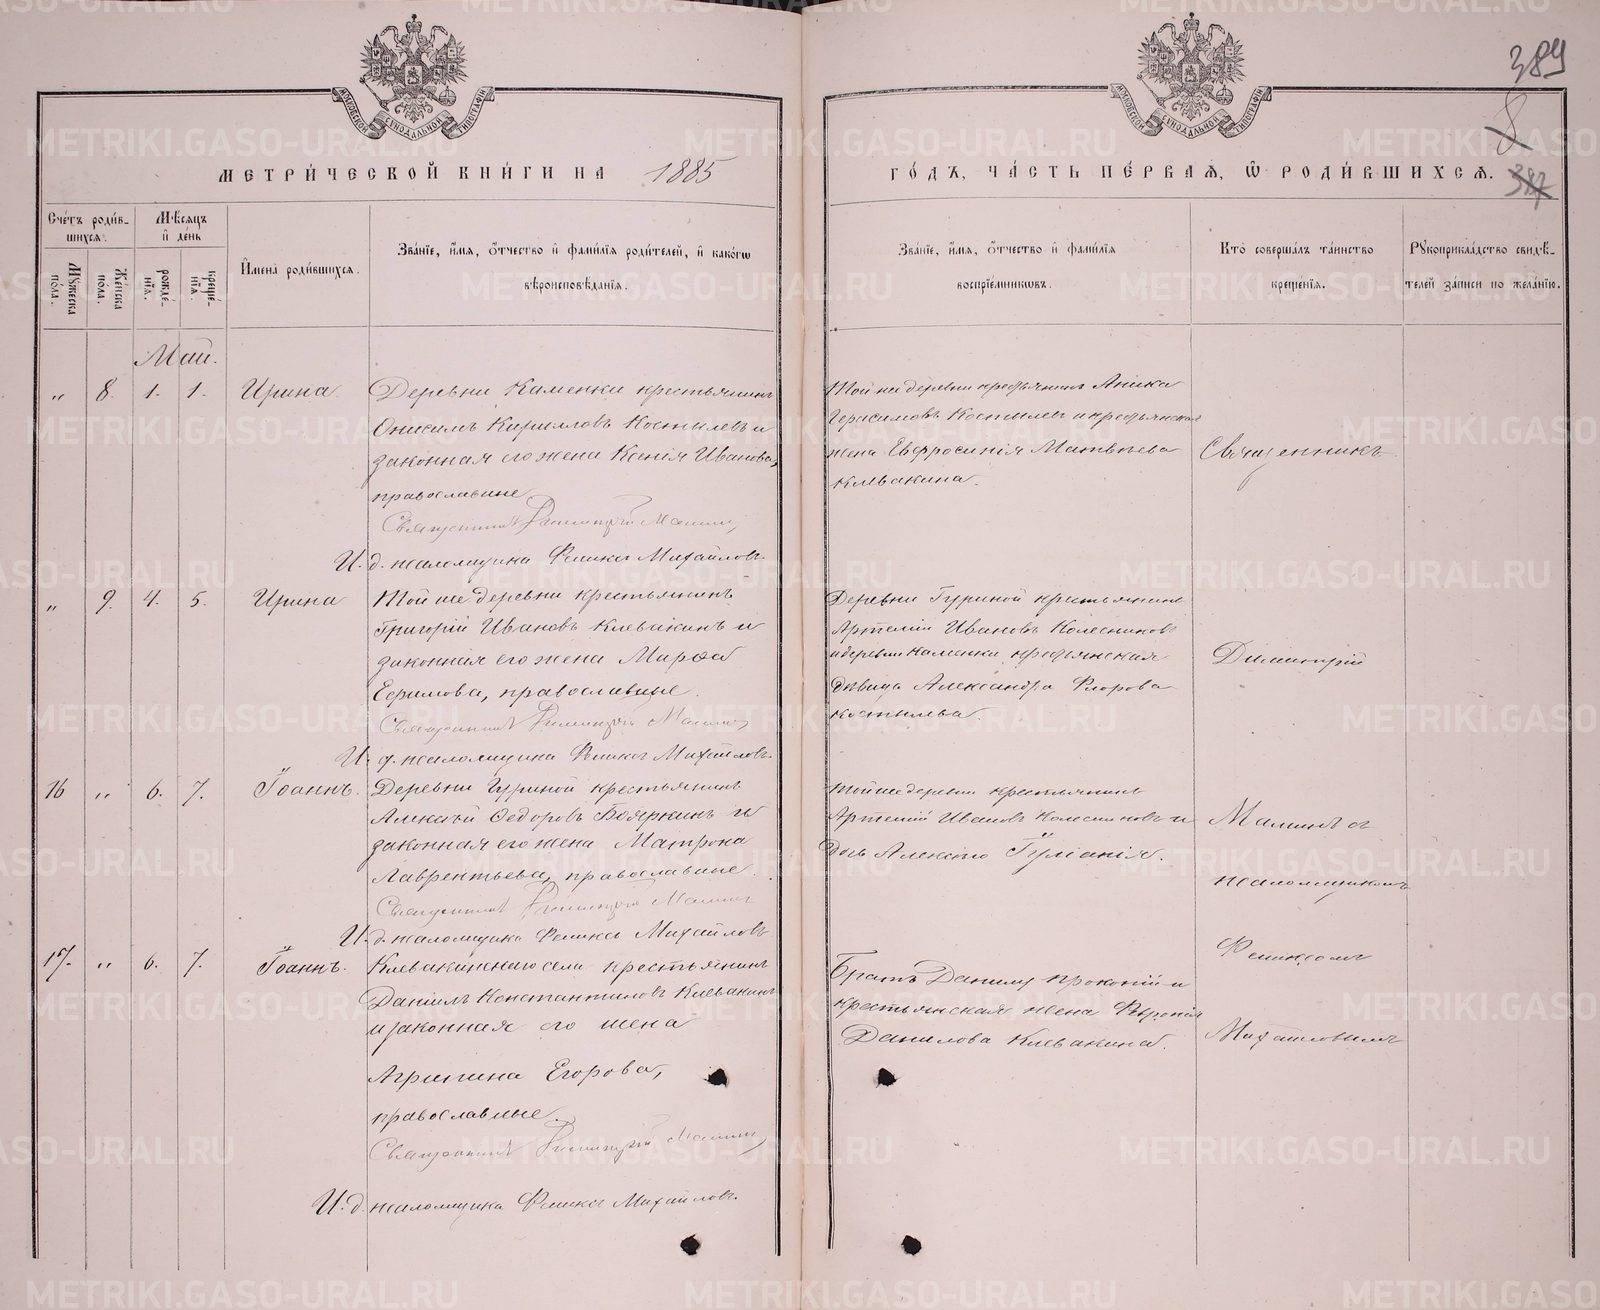 389
8
387
МОСКОВСКОЙ СѴНОДАЛЬНОЙ ТИПОГРАФІИ
МОСКОВСКОЙ СѴНОДАЛЬНОЙ ТИПОГРАФІИ
МЕТРИ́ЧЕСКОЙ КНИ́ГИ НА 1885
ГО́ДЪ, ЧА́СТЬ ПЕ́РВАѦ, Ѡ҆ РОДИ́ВШИХСѦ.
Сче́тъ роди́в-
шихсѧ.
Мѣ́сѧцъ
и҆ де́нь
Мꙋ́жеска по́ла.
Же́нска по́ла.
рожде́-нїѧ.
креще́-нїѧ.
И҆мена̀ роди́вшихсѧ.
Зва́нїе, и҆́мѧ, ѻ҆́тчество и҆ фами́лїѧ роди́телей, и҆ како́гѡ
вѣроисповѣ́данїѧ.
Зва́нїе, и҆́мѧ, ѻ҆́тчество и҆ фами́лїѧ
воспрїе́мниковъ.
Кто̀ соверша́лъ та́инство
креще́нїѧ.
Рꙋкоприкла́дство свидѣ́-
телей за́писи по жела́нїю.
Май.
„ 8. 1. 1. Ирина. Деревни Каменки крестьянинъ
Онисимъ Кирилловъ Костылевъ и
законная его жена Ксенія Иванова,
православные
Священникъ Димитрій Малинъ,
И. д. псаломщика Феликсъ Михайловъ.
Той же деревни крестьянинъ Аника
Герасимовъ Костылевъ и крестьянская
жена Евфросинія Матвѣева
Клевакина.
Священникъ
„ 9. 4. 5. Ирина Той же деревни крестьянинъ
Григорій Ивановъ Клевакинъ и
законная его жена Марѳа
Ефимова, православные.
Священникъ Димитрій Малинъ,
И. д. псаломщика Феликсъ Михайловъ.
Деревни Гуриной крестьянинъ
Артемій Ивановъ Колесниковъ
и деревни Каменки крестьянская
дѣвица Александра Флорова
Костылева.
Димитрій
16 „ 6. 7. Іоаннъ. Деревни Гуриной крестьянинъ
Алексѣй Ѳедоровъ Бояркинъ и
законная его жена Матрона
Лаврентьева, православные.
Священникъ Димитрій Малинъ
И. д. псаломщика Феликсъ Михайловъ
Той же деревни крестьянинъ
Артемій Ивановъ Колесниковъ и
дочь Алексѣя Іуліанія.
Малинъ съ
псаломщикомъ
17. „ 6. 7. Іоаннъ. Клевакинскаго села крестьянинъ
Даніилъ Константиновъ Клевакинъ
и законная его жена
Агрипина Егорова,
православные.
Священникъ Димитрій Малинъ,
И. д. псаломщика Феликсъ Михайловъ.
Братъ Данилу Прокопій и
крестьянская жена
Данилова Клевакина.
Феликсомъ
Михайловымъ